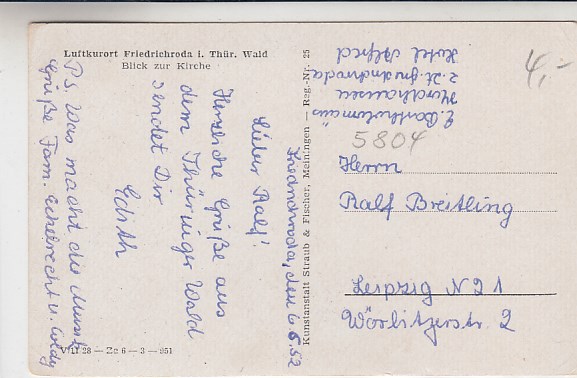 Luftkurort Friedrichroda i. Thür. Wald
Blick zur Kirche
Friedrichroda, den 6.5.52
Lieber Ralf!
Herzliche Grüße aus
dem Thüringer Wald
sendet Dir
Edith
P.S. Was macht die Musik
Grüße Fam.
VIII 28 — Ze 6 — 3 — 951
Kunstanstalt Straub & Fischer, Meiningen — Reg.-Nr. 25
E. Bartholomäus
Nordhausen
z. Zt. Friedrichroda
Hotel Alfred
4,-
5804
Herrn
Ralf Breitling
Leipzig N 21
Wörlitzerstr. 2